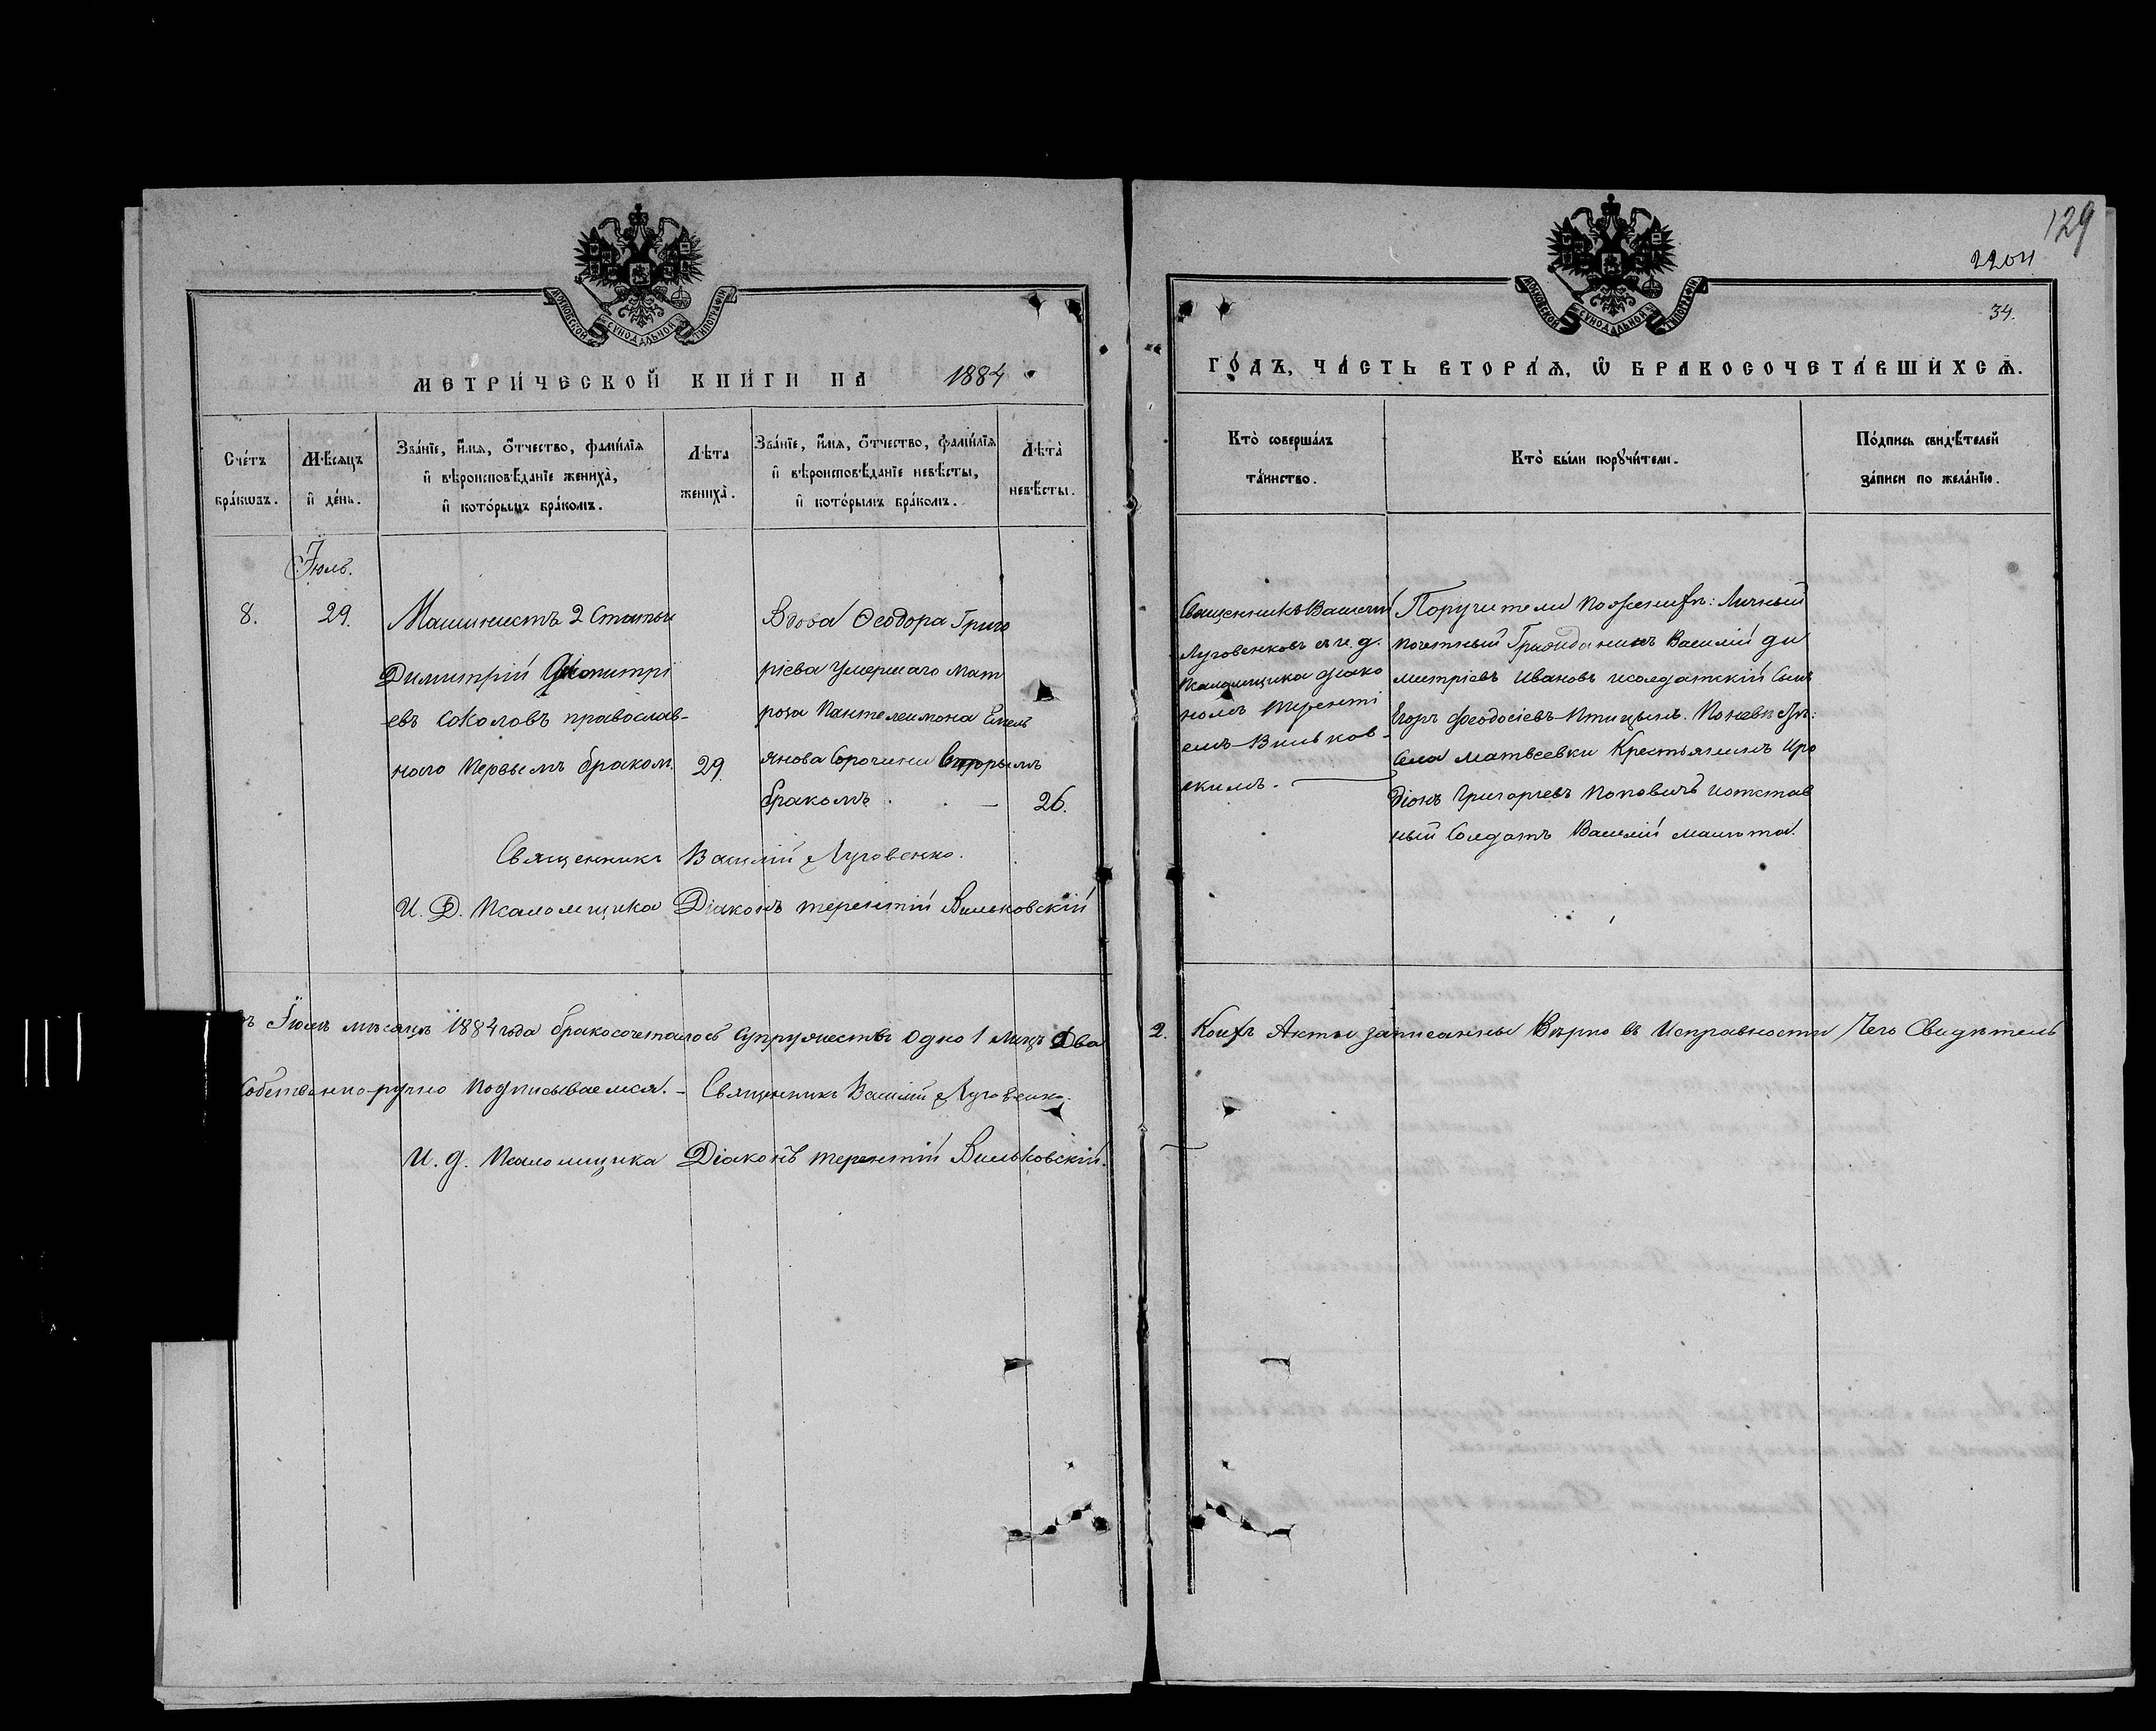 129
220об
34.
МОСКОВСКОЙ СѴНОДАЛЬНОЙ ТИПОГРАФІИ
МОСКОВСКОЙ СѴНОДАЛЬНОЙ ТИПОГРАФІИ
МЕТРИ́ЧЕСКОЙ КНИ́ГИ НА 1884
ГО́ДЪ, ЧА́СТЬ ВТОРА́Ѧ, Ѽ БРАКОСОЧЕТА́ВШИХСѦ.
Сче́тъ бра́кѡвъ.
Мѣ́сѧцъ и҆ де́нь.
Зва́нїе, и҆́мѧ, ѻ҆́тчество, фами́лїѧ
и҆ вѣроисповѣ́данїе жениха̀,
и҆ кото́рымъ бра́комъ.
Лѣ́та жениха̀.
Зва́нїе, и҆́мѧ, ѻ҆́тчество, фами́лїѧ
и҆ вѣроисповѣ́данїе невѣ́сты,
и҆ кото́рымъ бра́комъ.
Лѣ́та невѣ́сты.
Кто̀ соверша́лъ
та́инство.
Кто̀ бы́ли порꙋчи́тели.
По́дпись свидѣ́телей
за́писи по жела́нїю.
Іюль.
8.
29.
Машинистъ 2 Статьи
Димитрій Димитрі
евъ Соколовъ православ-
наго первымъ браком.
29.
Вдова Ѳеодора Григо
рієва умершаго мат
роза Пантелеимона Емель
янова Сорочини вторымъ
бракомъ. —
26.
Священникъ Василій
Луговенковъ и и. д.
Псаломщика Діако
номъ Теренті
емъ Вильков-
скимъ.
Поручители по женихѣ: Личный
почетный Гражданинъ Василій Ди
митріевъ Ивановъ и солдатскій сынъ
Егоръ Феодосіевъ Птицынъ. По невѣстѣ:
Села Матвеевки Крестьянинъ Иро
діонъ Григорьевъ Поповичъ и отстав
ный Солдатъ Василій
Священникъ Василій Луговенко.
И. Д. Псаломщика Діаконъ Терентій Вильковскій
Іюлѣ мѣсяцѣ 1884 года бракосочеталось супружествъ одно 1 лицъ Два 2. Коихъ Акты записанны Вѣрно въ Исправности Чего Свидѣтель
Собственно-ручно подписываемся. – Священникъ Василій Луговенко.
И. д. Псаломщика Діаконъ Терентій Вильковскій.